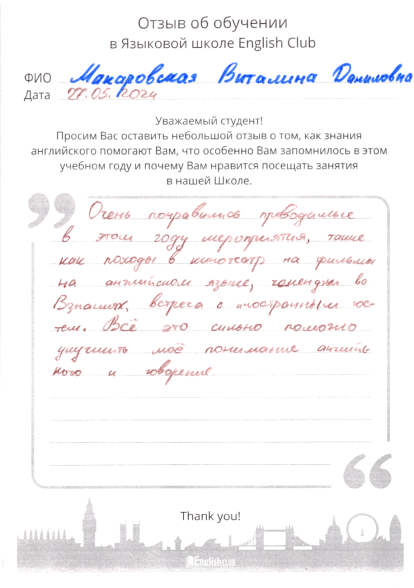 Отзыв об обучении
в Языковой школе English Club
ФИО Макаровская Виталина Даниловна
Дата 27.05.2024
Уважаемый студент!
Просим Вас оставить небольшой отзыв о том, как знания
английского помогают Вам, что особенно Вам запомнилось в этом
учебном году и почему Вам нравится посещать занятия
в нашей Школе.
Очень понравились проводимые
в этом году мероприятия, такие
как походы в кинотеатр на фильмы
на английском языке, челендж во
встреса с иностранным гос-
тем. Всё это сильно помогло
улучшить моё понимание англий-
кого и говорение.
Thank you!
English club